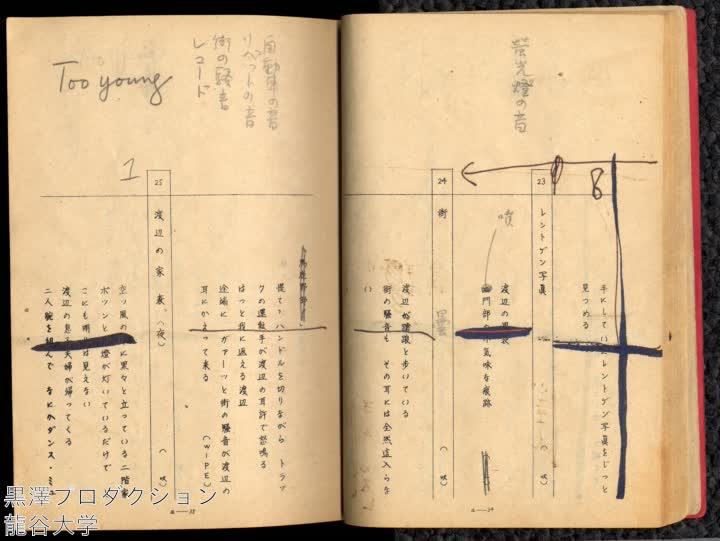 螢光燈の音
8
手にしているレントゲン写真をじっと
見つめる
23 レントゲン写真
渡辺の
噴
門部の不気味な痕跡
24 街
曇
渡辺が蹌踉と歩いている
街の騒音も その耳には全然這入らな
い
a—34
自動車の音
リベットの音
街の騒音
レコード
Too young
慌てゝハンドルを切りながら トラッ
クの運転手が渡辺の耳許で怒鳴る
はっと我に返える渡辺
途端に ガァーッと街の騒音が渡辺の
耳にかえって来る
(WIPE)
1
25 渡辺の家 表(夜)
空っ風の中に黒々と立っている二階家
ポツンと 燈が灯いているだけで
どこにも明りは見えない
渡辺の息子夫婦が帰ってくる
二人腕を組んで なにかダンス・ミュ
a—35
黒澤プロダクション
龍谷大学